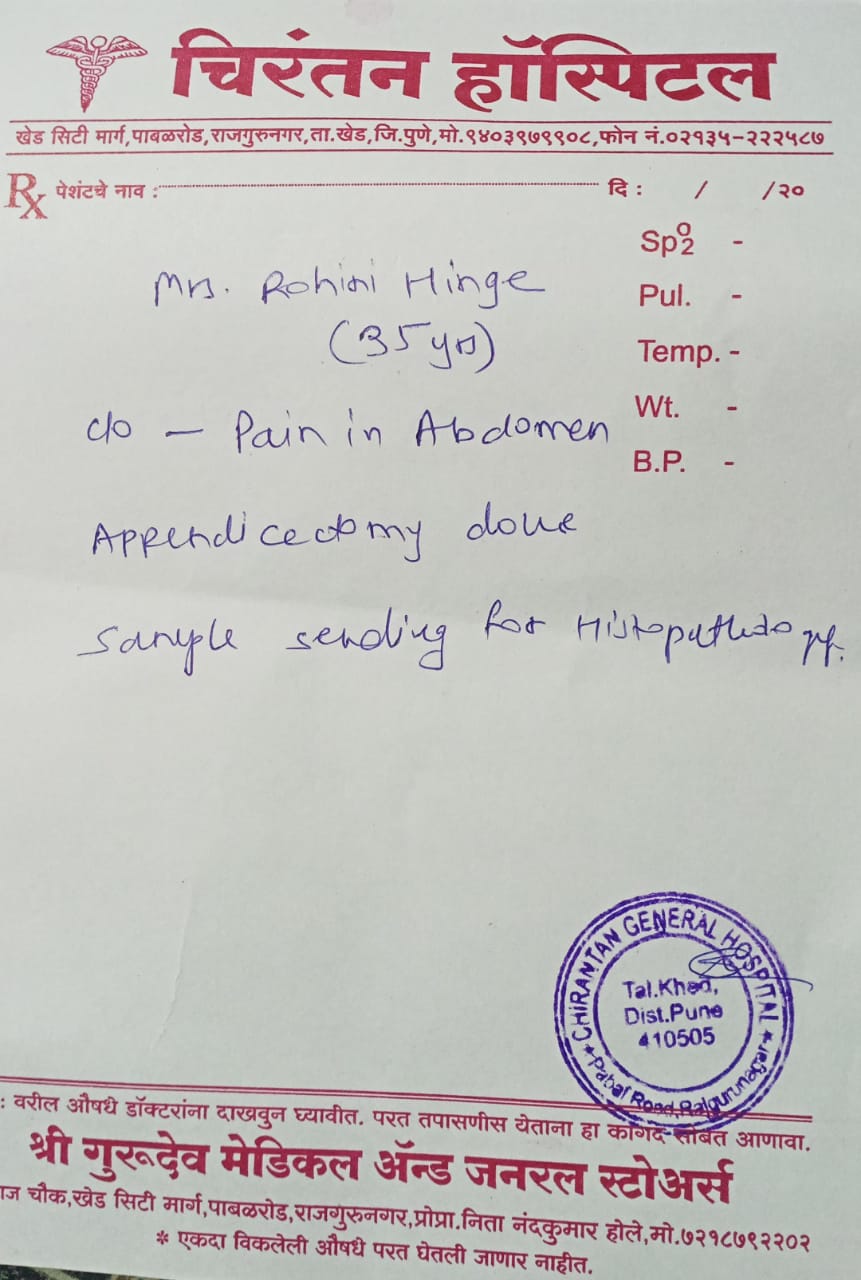 चिरंतन हॉस्पिटल
खेड सिटी मार्ग,पाबळरोड,राजगुरुनगर,ता.खेड,जि.पुणे,मो.९४०३९७९९०८,फोन नं.०२१३५-२२२५८७
Rx पेशंटचे नाव : दि : / /२०
Spo2 -
Mrs. Rohini Hinge
Pul. -
(35 yrs)
Temp. -
Wt. -
c/o - Pain in Abdomen
B.P. -
Appendicectomy done
Sample sending for Histopathology.
CHIRANTAN GENERAL HOSPITAL
Tal.Khed,
Dist.Pune
410505
★ Pabal Road,Rajgurunagar ★
: वरील औषधे डॉक्टरांना दाखवुन घ्यावीत. परत तपासणीस येताना हा कागद सोबत आणावा.
श्री गुरूदेव मेडिकल ॲन्ड जनरल स्टोअर्स
चौक,खेड सिटी मार्ग,पाबळरोड,राजगुरुनगर,प्रोप्रा.निता नंदकुमार होले,मो.७२१८७९२२०२
* एकदा विकलेली औषधे परत घेतली जाणार नाहीत.